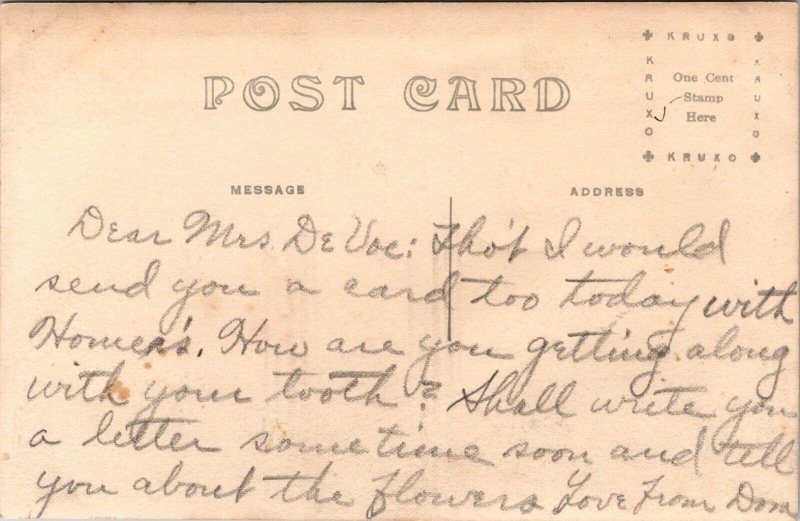 KRUXO
KRUXO
KRUXO
KRUXO
One Cent
Stamp
Here
POST CARD
MESSAGE
ADDRESS
Dear Mrs. De Voe: Tho't I would
send you a card too today with
Homer's. How are you getting along
with your tooth? Shall write you
a letter sometime soon and tell
you about the flowers Love From